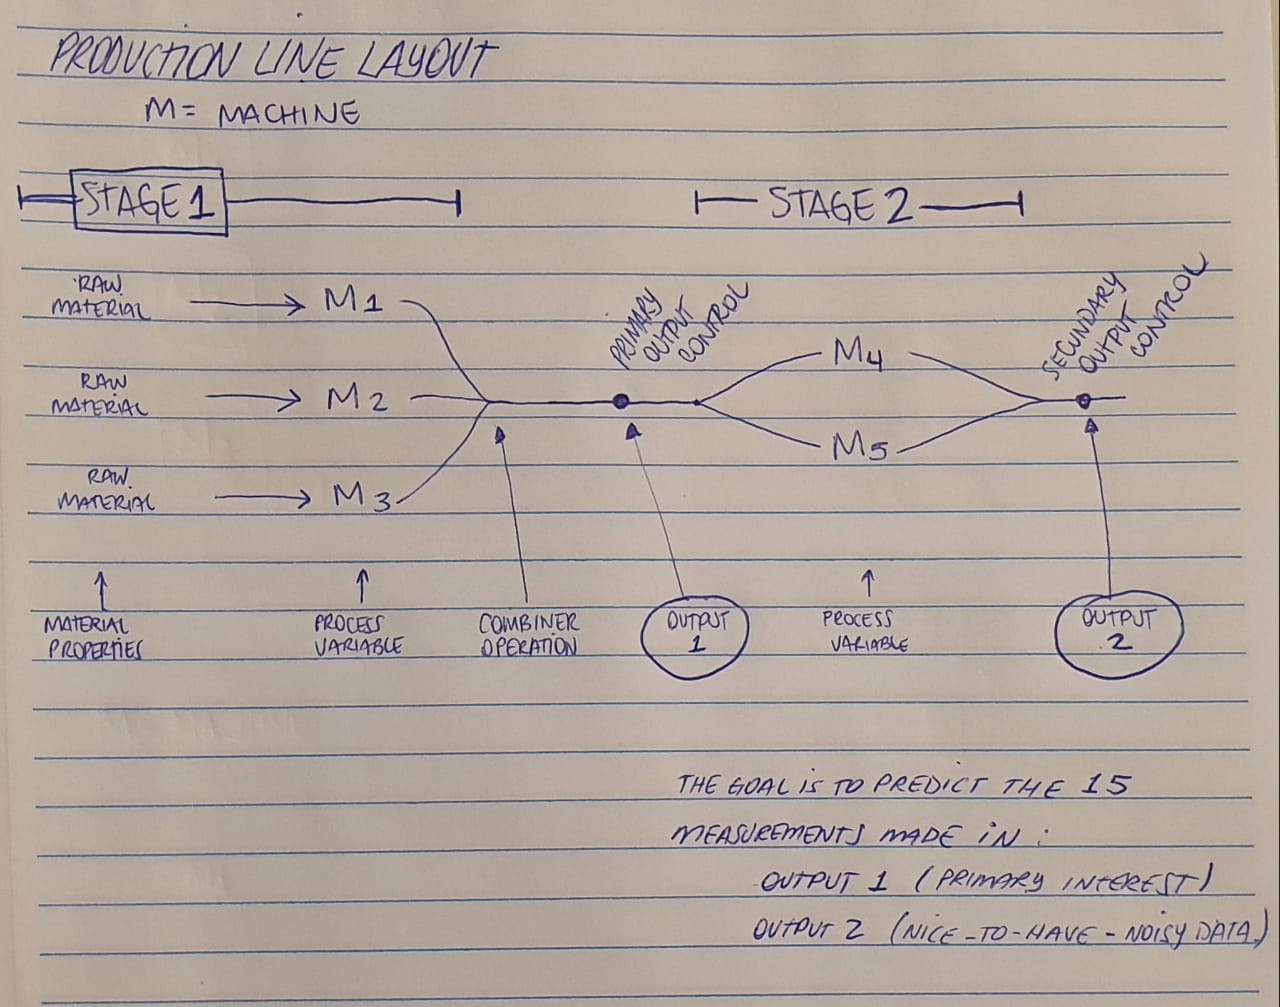 PRODUCTION LINE LAYOUT
M = MACHINE
STAGE 1
STAGE 2
RAW
MATERIAL
M1
RAW
MATERIAL
M2
RAW
MATERIAL
M3
PRIMARY
OUTPUT
CONTROL
M4
M5
SECUNDARY
OUTPUT
CONTROL
MATERIAL
PROPERTIES
PROCESS
VARIABLE
COMBINER
OPERATION
OUTPUT
1
PROCESS
VARIABLE
OUTPUT
2
THE GOAL IS TO PREDICT THE 15
MEASUREMENTS MADE IN:
OUTPUT 1 (PRIMARY INTEREST)
OUTPUT 2 (NICE-TO-HAVE - NOISY DATA)